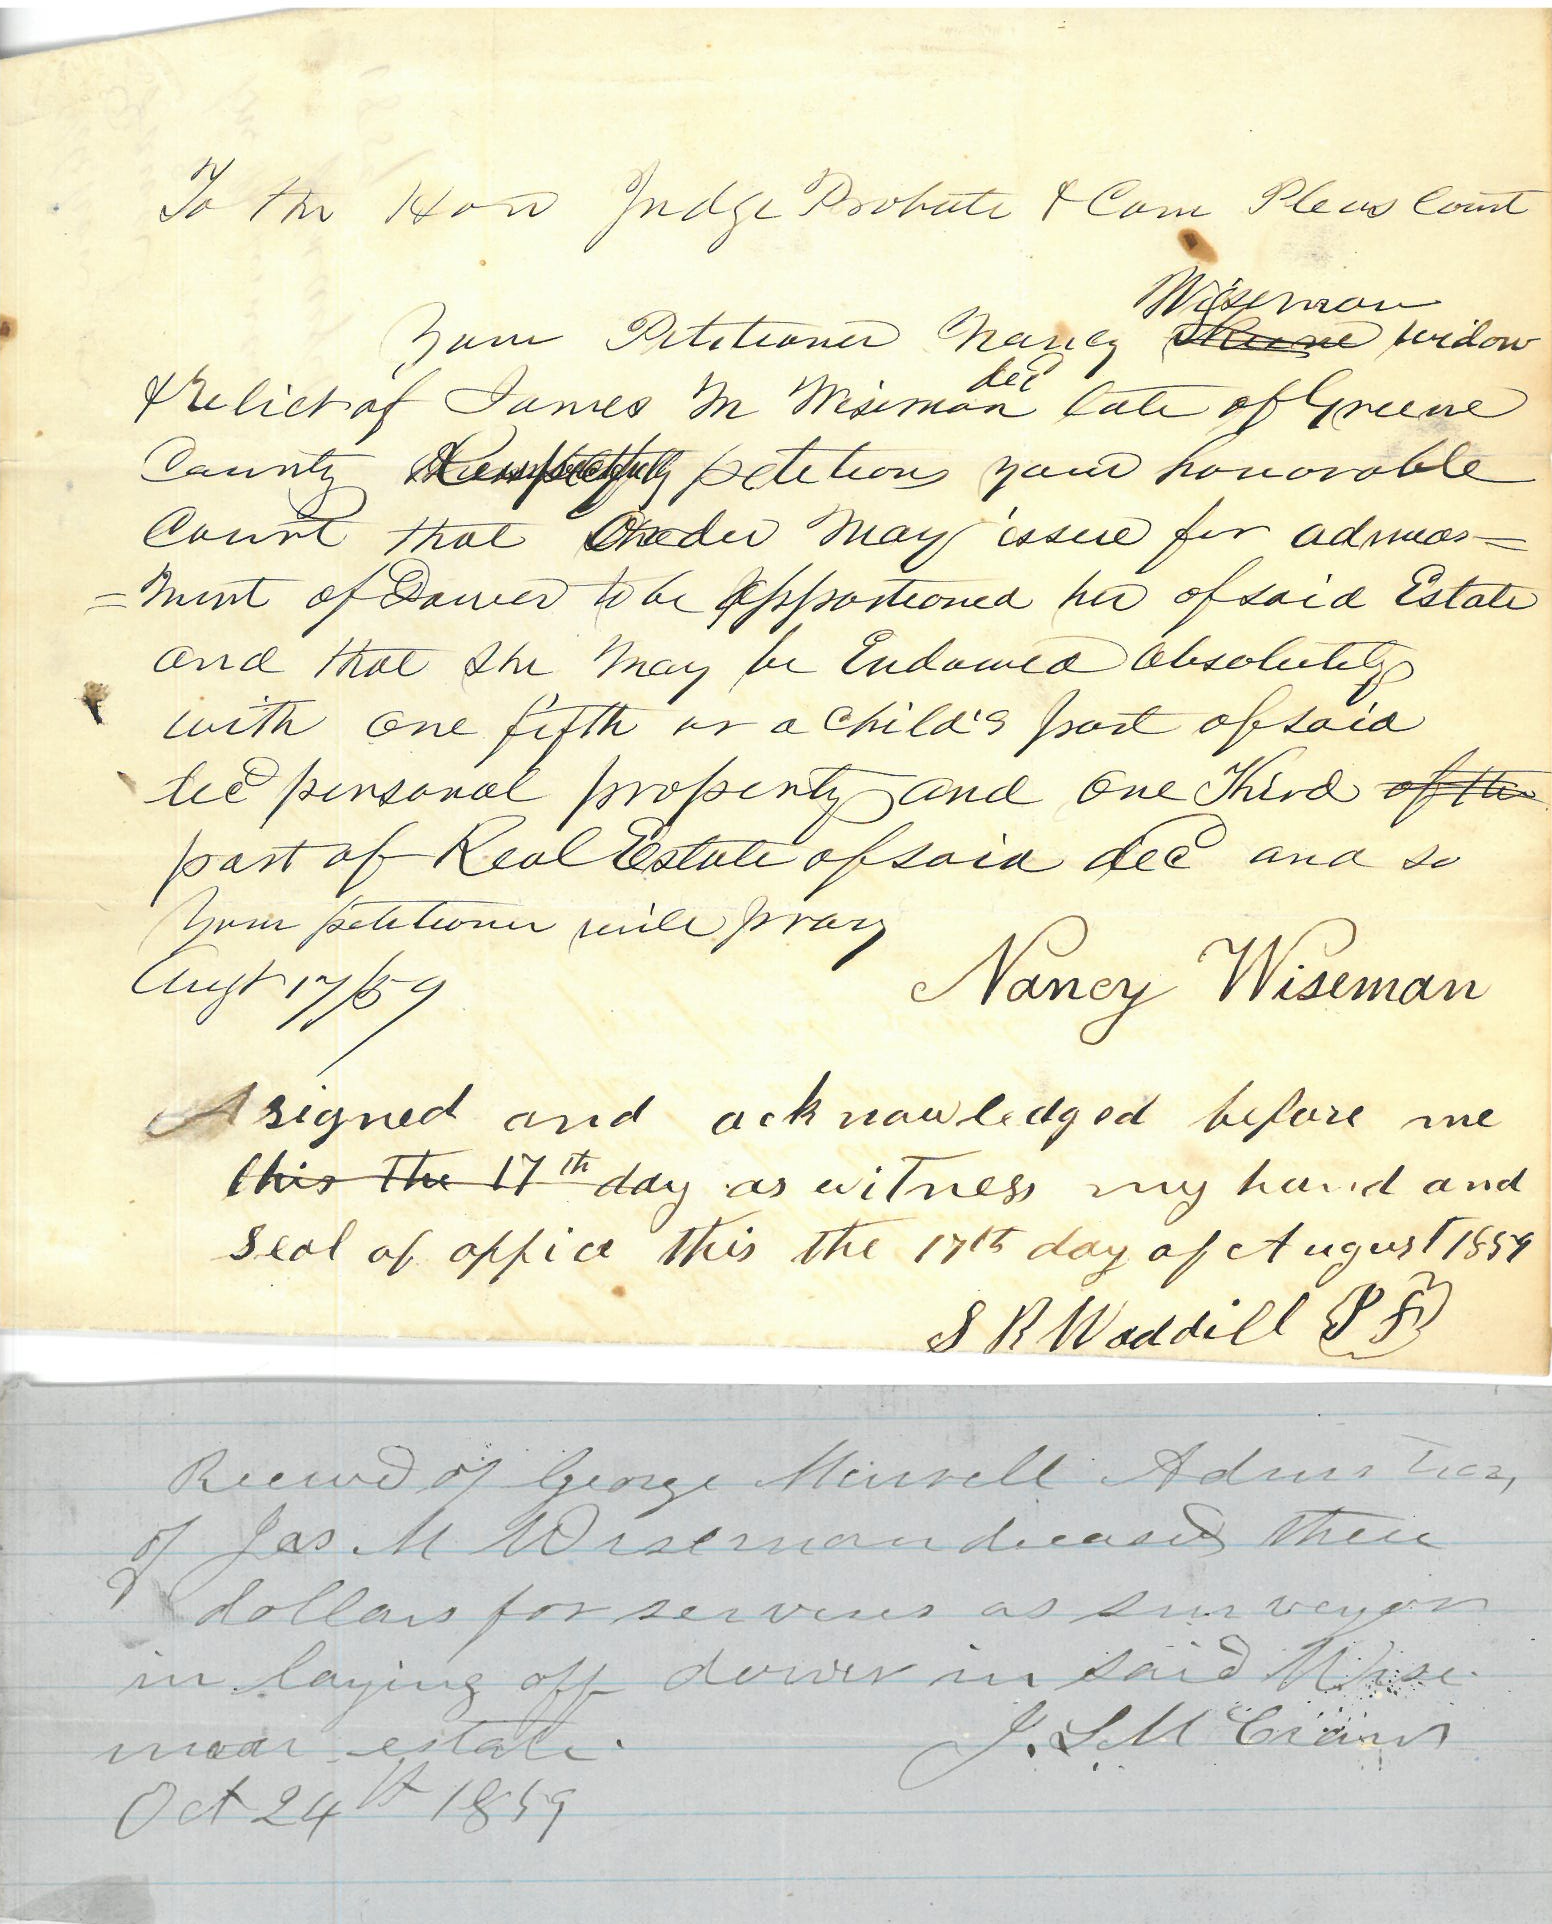 To the Hon Judge Probate & Com Pleas Court
Wiseman
Your Petitioner Nancy widow
decd
& Relict of James M Wiseman late of Greene
County Respectfully petitions your honorable
Court that Order May issue for admeas=
=ment of Dower to be Apportioned her of said Estate
and that she may be Endowed Absolutely
with one fifth or a child's part of said
decd personal property and one Third of the
part of Real Estate of said decd and so
Your petitioner will pray
Augt 17/59
Nancy Wiseman
signed and acknowledged before me
this the 17th day as witness my hand and
seal of office this the 17th day of August 1859
S R Waddill
Received of George Murrell
of Jas M Wiseman deceased three
dollars for services as surveyor
in laying off dower in said Wise-
man estate.
Oct 24th 1859